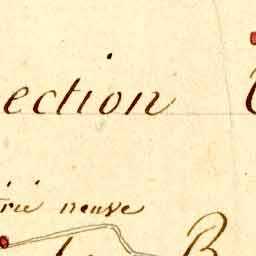 ection
rie neuve
B